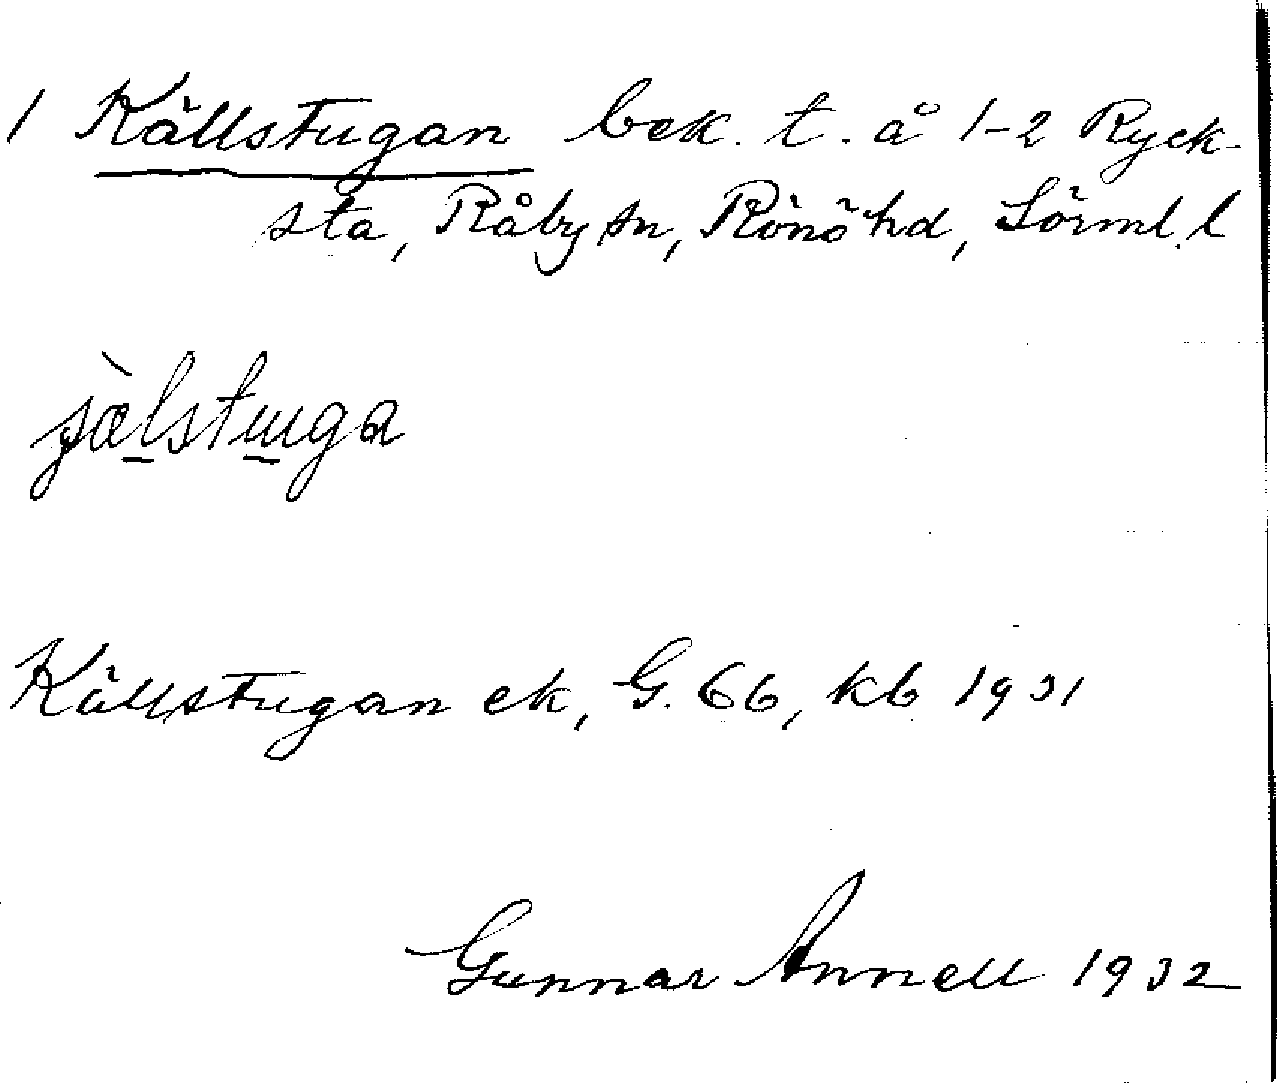 1 Källstugan bek. t. å 1-2 Ryck-
sta, Råby sn, Rönö hd, Sörml. l
Källstugan ek, G. 66, kb 1931
Gunnar Annell 1932